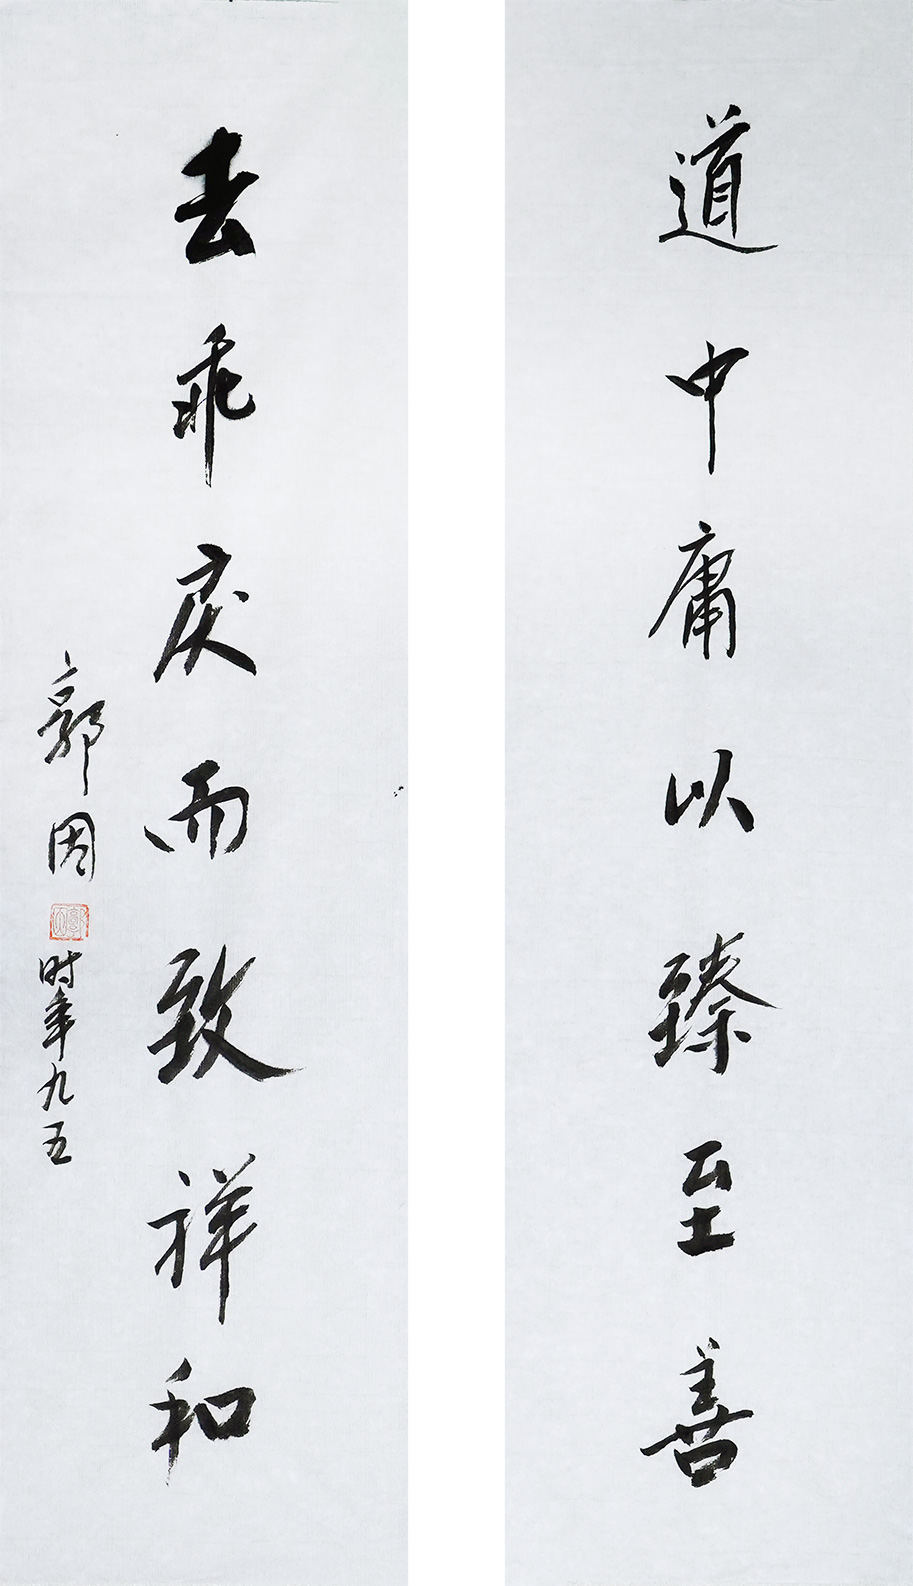 道中庸以臻至善
去乖戾而致祥和
郭因
时年九五